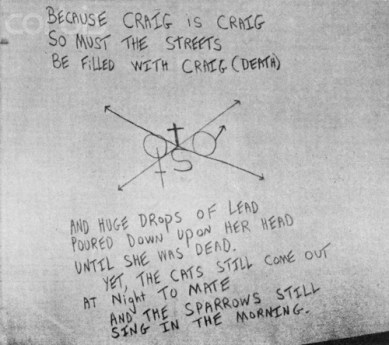 BECAUSE CRAIG IS CRAIG
SO MUST THE STREETS
BE FILLED WITH CRAIG (DEATH)
t
S
AND HUGE DROPS OF LEAD
POURED DOWN UPON HER HEAD
UNTIL SHE WAS DEAD.
YET, THE CATS STILL COME OUT
AT Night TO MATE
AND THE SPARROWS STILL
SING IN THE MORNING.